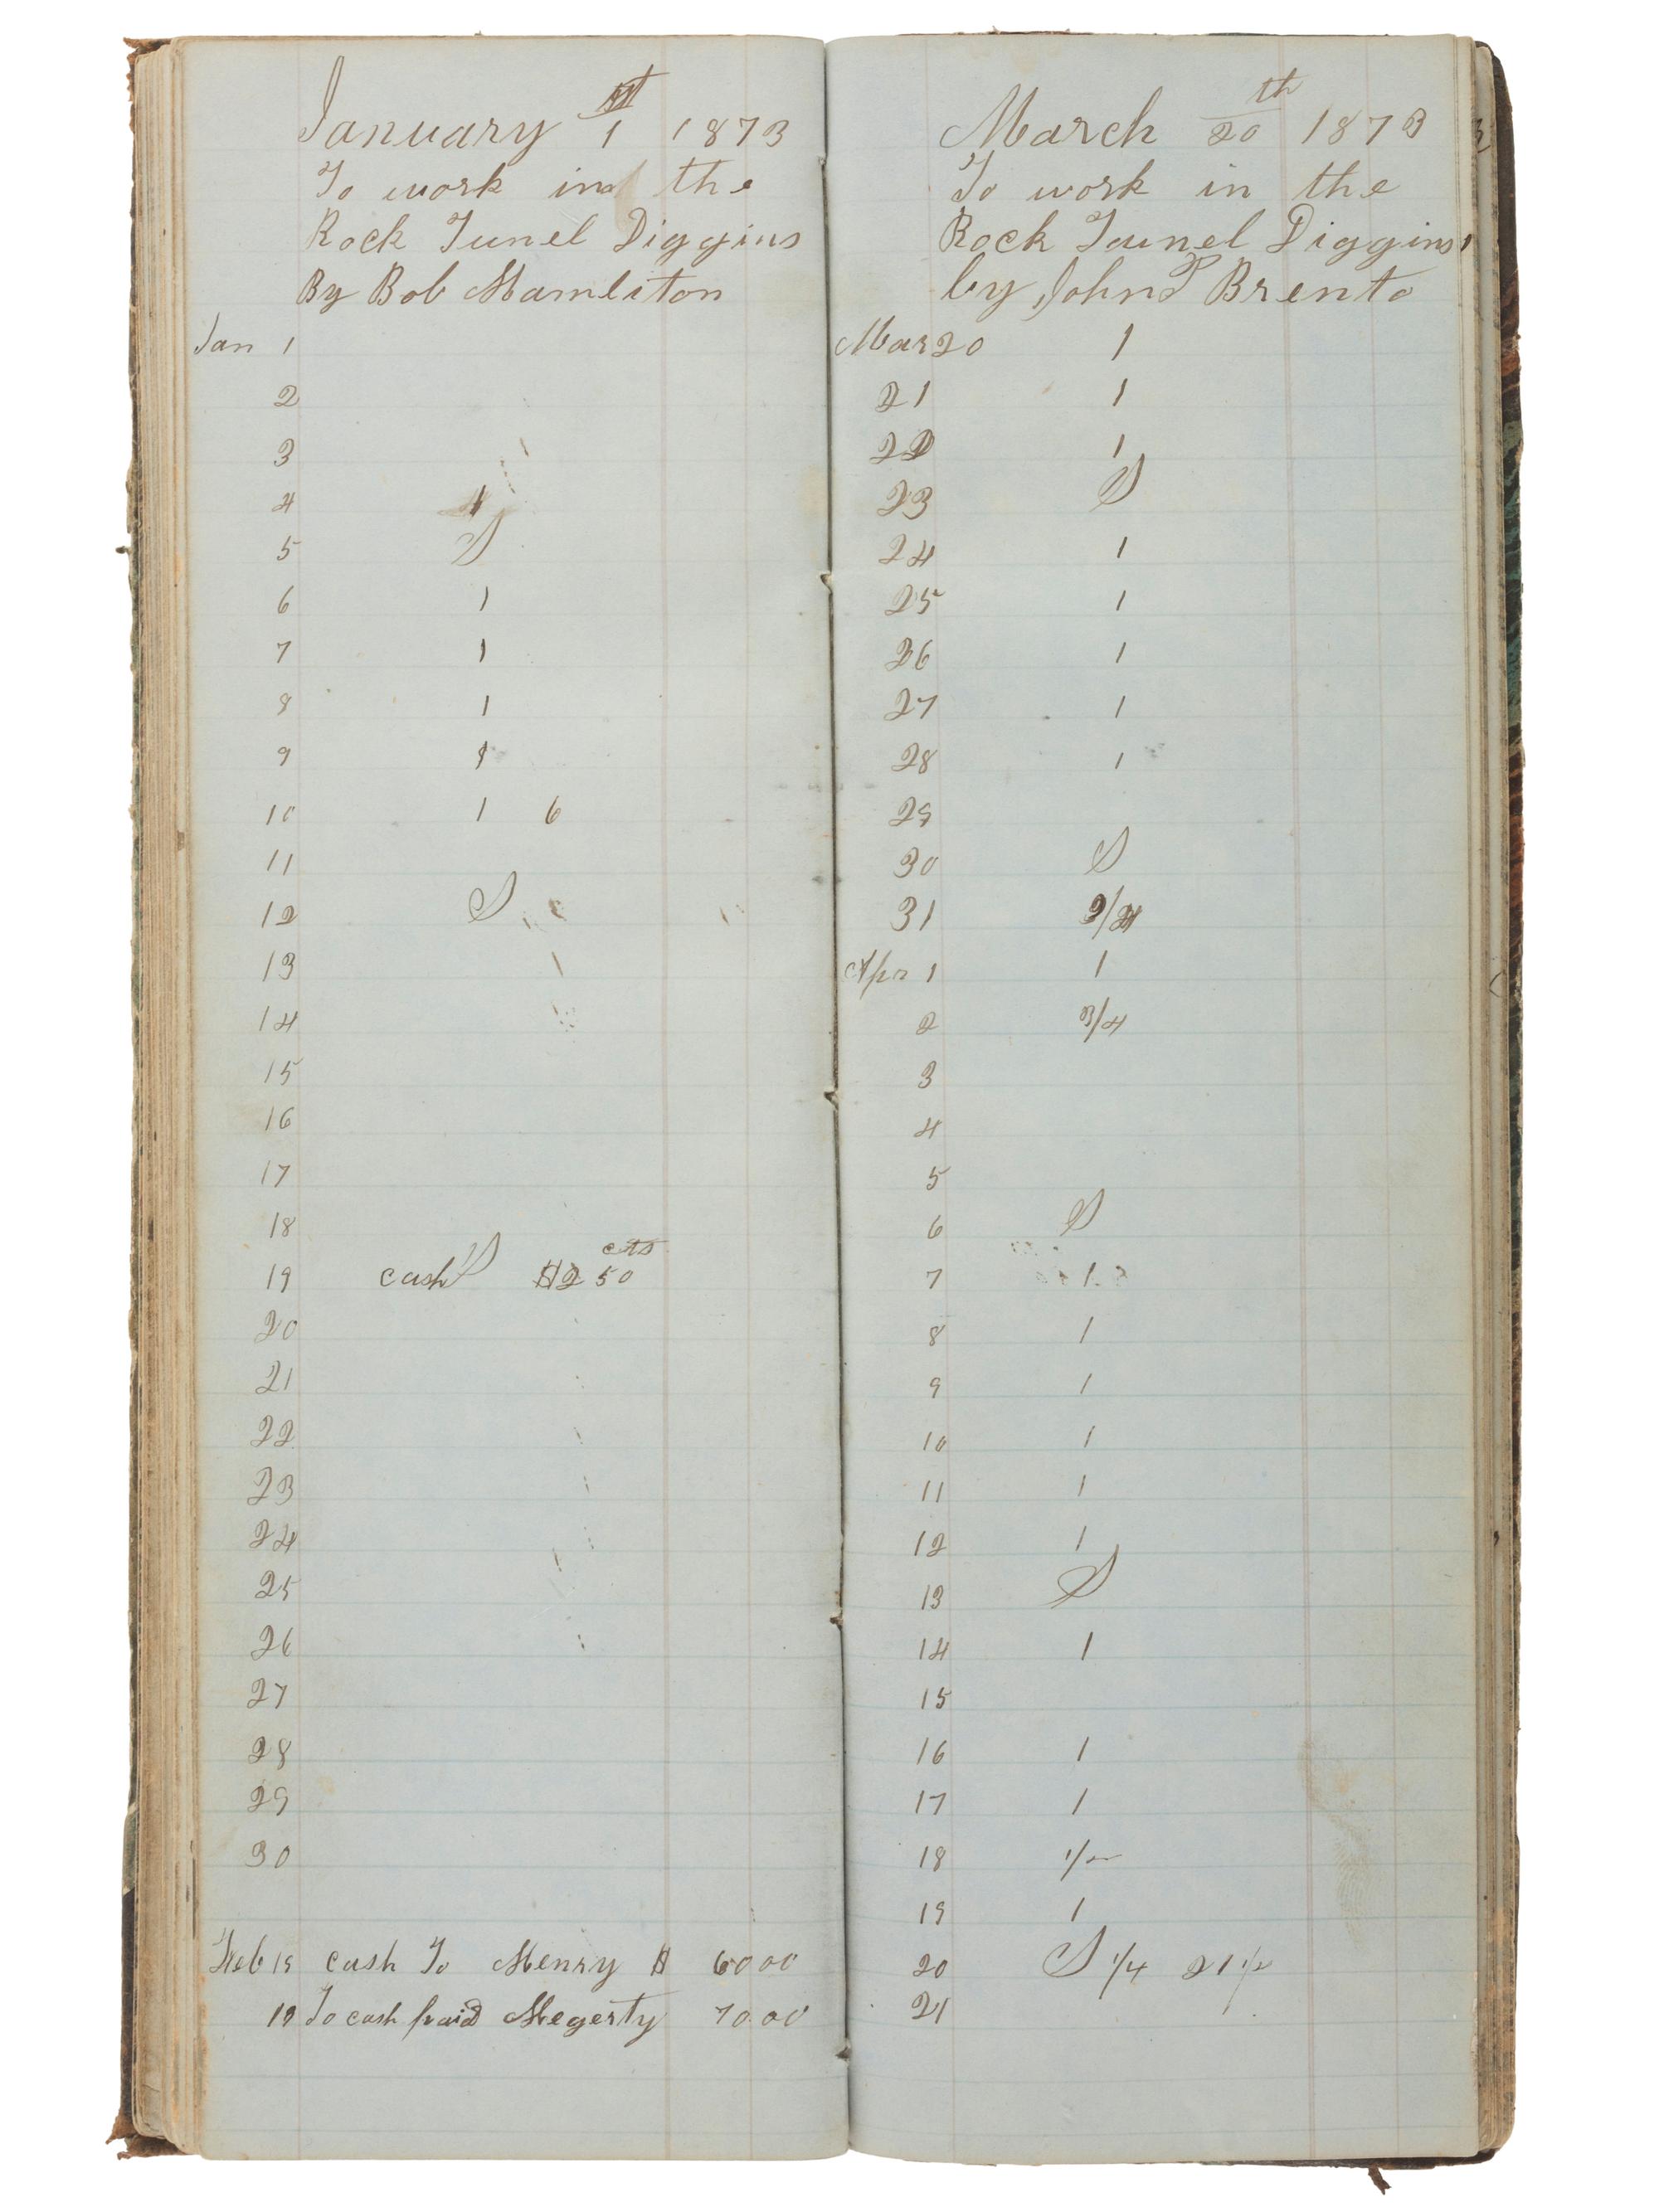 January 1st 1873
To work in the
Rock Tunel Diggins
By Bob Hamliton
Jan 1
2
3
4 1
5 S
6 1
7 1
8 1
9 1
10 1 6
11
12 S
13
14
15
16
17
18
19 cash S $2 50 cts
20
21
22
23
24
25
26
27
28
29
30
Feb 19 cash To Henry $ 60 00
19 To cash paid Hegerty 70.00
March 20th 1873
To work in the
Rock Tunel Diggins
by John P Brento
Mar 20 1
21 1
22 1
23 S
24 1
25 1
26 1
27 1
28 1
29
30 S
31 3/4
Apr 1 1
2 3/4
3
4
5
6 S
7 1
8 1
9 1
10 1
11 1
12 1
13 S
14 1
15
16 1
17 1
18 1/2
19 1
20 S 1/4 21 1/2
21